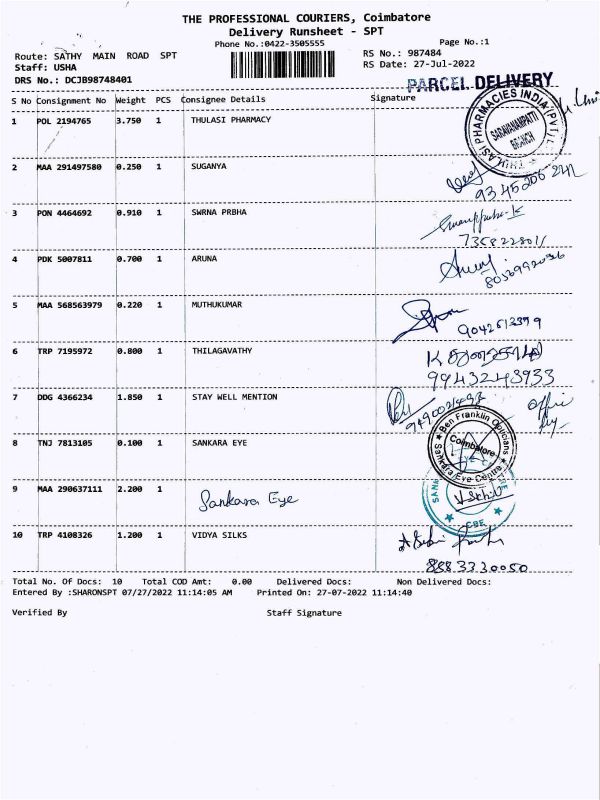 THE PROFESSIONAL COURIERS, Coimbatore
Delivery Runsheet - SPT
Phone No.:0422-3505555
Page No.:1
Route: SATHY MAIN ROAD SPT
RS No.: 987484
Staff: USHA
RS Date: 27-Jul-2022
DRS No.: DCJB98748401
PARCEL DELIVERY
S No Consignment No Weight PCS Consignee Details Signature
1 POL 2194765 3.750 1 THULASI PHARMACY
THULASI PHARMACIES INDIA (PVT) L
SARAVANAMPATTI
BRANCH
2 MAA 291497580 0.250 1 SUGANYA
3 PON 4464692 0.910 1 SWRNA PRBHA
4 PDK 5007811 0.700 1 ARUNA
5 MAA 568563979 0.220 1 MUTHUKUMAR
9042613399
6 TRP 7195972 0.800 1 THILAGAVATHY
9943243933
7 DDG 4366234 1.850 1 STAY WELL MENTION
8 TNJ 7813105 0.100 1 SANKARA EYE
Ben Franklin Opticians
Coimbatore
Sankara Eye Centre
9 MAA 290637111 2.200 1 Sankara Eye
CBE
10 TRP 4108326 1.200 1 VIDYA SILKS
8883330050
Total No. Of Docs: 10 Total COD Amt: 0.00 Delivered Docs: Non Delivered Docs:
Entered By :SHARONSPT 07/27/2022 11:14:05 AM Printed On: 27-07-2022 11:14:40
Verified By Staff Signature